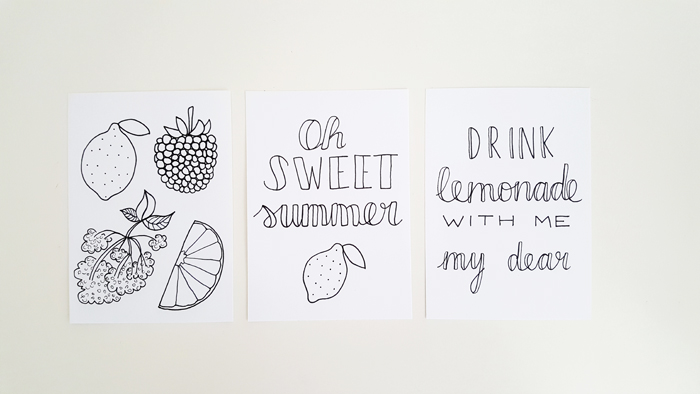 Oh
SWEET
summer
DRINK
lemonade
WITH ME
my dear